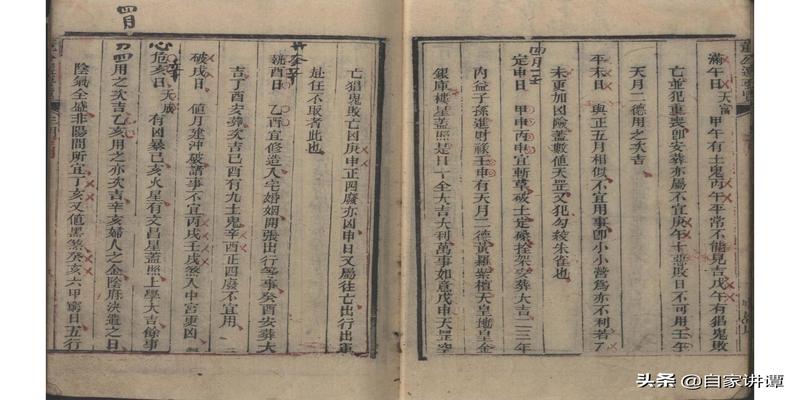 滿午日 天富 甲午有土鬼丙午平常不能見吉戊午有猖鬼敗
亡並犯重喪卽安葬亦屬不宜庚午十惡敗日不可用壬午
天月二德用之次吉
平未日 與正五月相似不宜用事卽小小營爲亦不利若
未更加凶險蓋數値天罡又犯勾絞朱雀也
四月
定申日 甲申丙申宜斬草破土定磉拴架安葬大吉二三年
內益子孫進財祿壬申有天月二德黃羅紫檀天皇地皇金
銀庫樓星蓋照是日十全大吉大利萬事如意戊申天罡空
亡猖鬼敗亡凶庚申正四廢亦凶申日又屬往亡出行出軍
赴任不取者此也
執酉日 乙酉宜修造入宅婚姻開張出行等事癸酉安葬大
吉丁酉安葬次吉己酉有九土鬼辛酉正四廢不宜用
破戌日 値月建沖破諸事不宜丙戌壬戌煞入中宮更凶
危亥日 天成 有凶暴己亥火星有文昌星蓋照上學大吉餘事
四用之次吉乙亥用之亦次吉辛亥婦人之金陰府決遣之日
陰氣全盛非陽間所宜丁亥又値黑煞癸亥六甲窮日五行
四月
头条 @自家讲谭